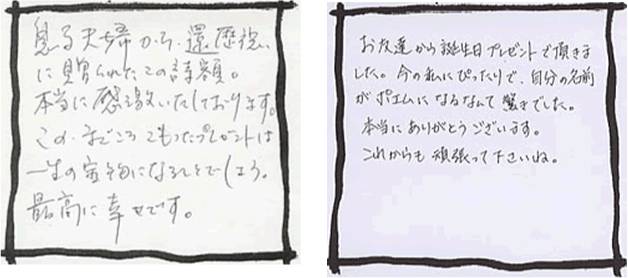 息子夫婦から、還暦祝い
に貰られたこの詩額。
本当に感激いたしております。
この、まごころこもったプレゼントは
一生の宝物になることでしょう。
最高に幸せです。
お友達から誕生日プレゼントで頂きま
した。今の私にぴったりで、自分の名前
がポエムになるなんて驚きでした。
本当にありがとうございます。
これからも頑張って下さいね。